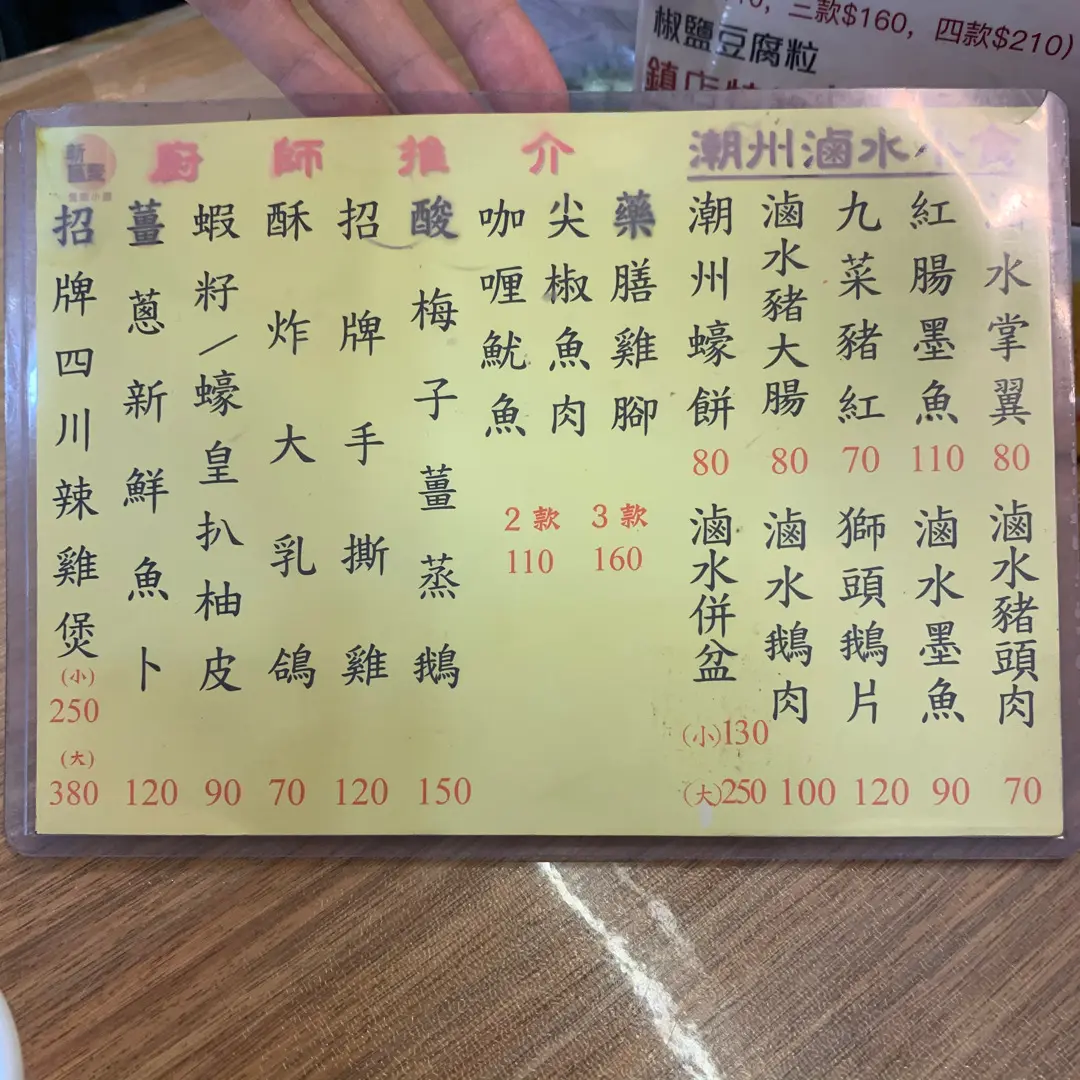 三款$160，四款$210)
椒鹽豆腐粒
鎮店
廚師推介
招牌四川辣雞煲
(小)
250
(大)
380
薑蔥新鮮魚卜
120
蝦籽/蠔皇扒柚皮
90
酥炸大乳鴿
70
招牌手撕雞
120
酸梅子薑蒸鵝
150
咖喱魷魚
尖椒魚肉
藥膳雞腳
2款 3款
110 160
潮州滷水小食
潮州蠔餅
80
滷水豬大腸
80
九菜豬紅
70
紅腸墨魚
110
滷水掌翼
80
滷水併盆
(小)130
(大)250
滷水鵝肉
100
獅頭鵝片
120
滷水墨魚
90
滷水豬頭肉
70